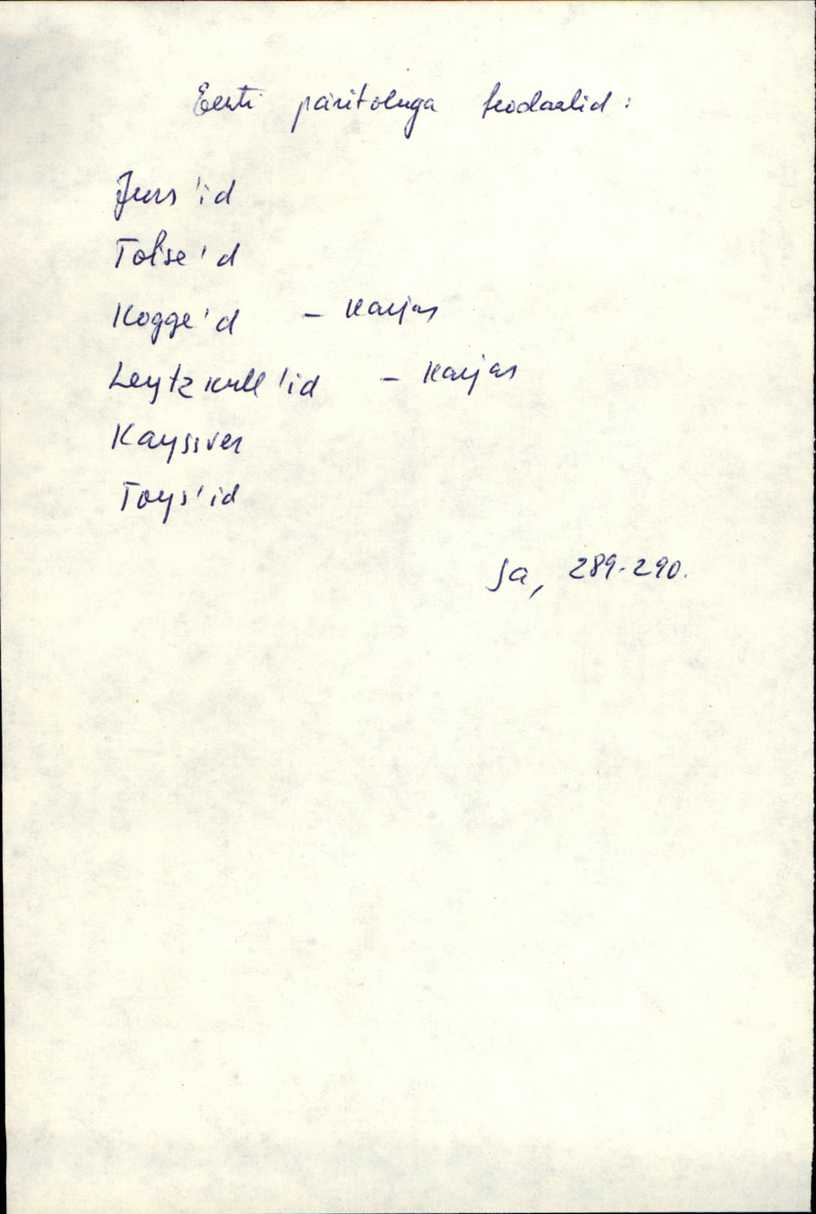 Eesti päritoluga feodaalid:
Jurs'id
Tolse'id
Kogge'd – Harjus
Leytzkull'id – Harjus
Kayssver
Toys'id
Ja, 289-290.